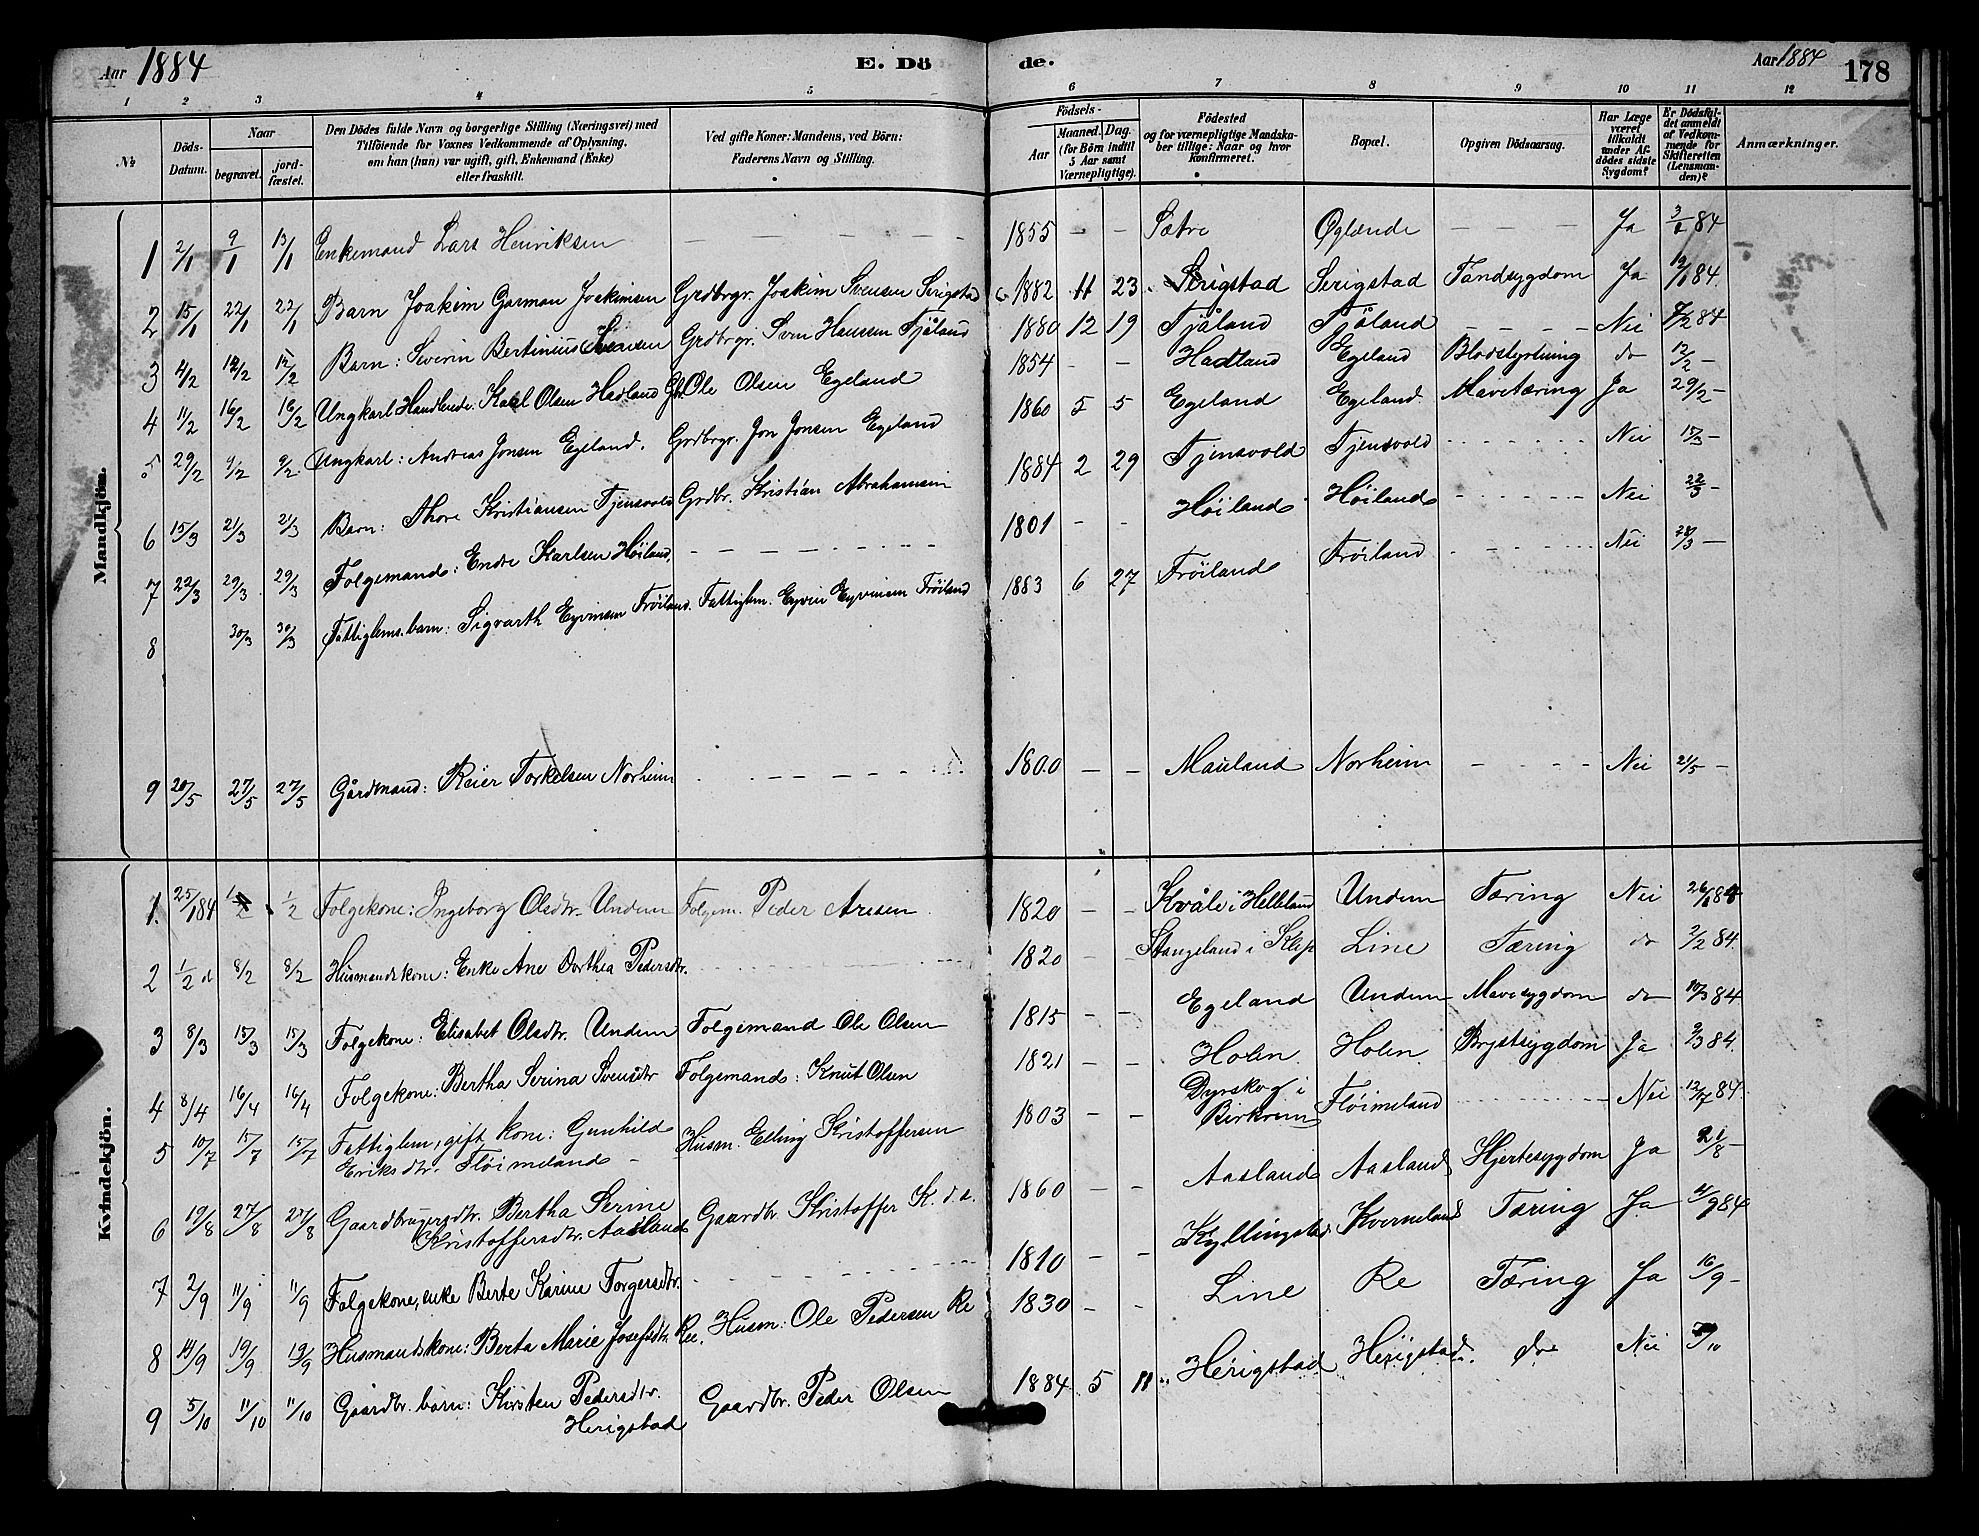 Aar 1884
E. Dö
de.
Aar 1884
178
1 2 3 4 5 6 7 8 9 10 11 12
No
Döds-Datum.
Naar
begravet.
jord-fæstet.
Den Dödes fulde Navn og borgerlige Stilling (Næringsvei) med
Tilföiende for Voxnes Vedkommende af Oplysning,
om han (hun) var ugift, gift, Enkemand (Enke)
eller fraskilt.
Ved gifte Koner: Mandens, ved Börn:
Faderens Navn og Stilling.
Födsels-
Aar
Maaned. Dag.
(for Börn indtil
5 Aar samt
Værnepligtige).
Födested
og for værnepligtige Mandska-
ber tillige: Naar og hvor
konfirmeret.
Bopæl.
Opgiven Dödsaarsag.
Har Læge
været
tilkaldt
under Af-
dödes sidste
Sygdom?
Er Dödsfal-
det anmeldt
af Vedkom-
mende for
Skifteretten
(Lensman-
den)?
Anmærkninger.
Mandkjön.
1 2/1 9/1 13/1 Enkemand Lars Henriksen — — — 1855 — — Sætre Øglænde — — — Ja 3/1 84
2 15/1 22/1 22/1 Barn Joakim Garman Joakimsen Grdbrgr. Joakim Svensen Serigstad 1882 11 23 Serigstad Serigstad Tandsygdom Ja 19/1 84
3 4/2 12/2 12/2 Barn: Severin Bertinius Svensen Grdbrgr. Sven Hansen Tjåland 1880 12 19 Tjåland Tjåland — — — Nei 7/2 84
4 11/2 16/2 16/2 Ungkarl Handlende: Karl Olsen Hadland Gbr. Ole Olsen Egeland 1854 — — Hadland Egeland Blodstyrtning do 12/2 —
5 29/2 9/2 9/2 Ungkarl: Andreas Jonsen Egeland. Grdbrgr. Jon Jonsen Egeland 1860 5 5 Egeland Egeland Mavetæring Ja 29/2 —
6 15/3 21/3 21/3 Barn: Thore Kristiansen Tjensvold Grdbr. Kristian Abrahamsen 1884 2 29 Tjensvold Tjensvold — — — Nei 15/3 —
7 22/3 29/3 29/3 Folgemand: Endre Karlsen Höiland, — — — 1801 — — Höiland Höiland — — — Nei 22/3 —
8 30/3 30/3 Fattiglems barn: Sigvarth Eyvinsen Fröiland. Fattiglem. Eyvin Eyvinsen Fröiland 1883 6 27 Fröiland Fröiland — — — Nei 28/3 —
9 20/5 27/5 27/5 Gårdmand: Reier Torkelsen Norheim — — — 1800 — — Mauland Norheim — — — Nei 21/5 —
Kvindekjön.
1. 25/1 84 1/2 1/2 Folgekone: Ingeborg Olsdtr. Undem Folgem. Peder Aresen. 1820 — — Kvåle i Helleland Undem Tæring Nei 26/1 84
2 1/2 d 8/2 8/2 Husmandskone: Enke Ane Dorthea Pedersdtr. — — — 1820 — — Stangeland i Klep Line Tæring do 2/2 84.
3 8/3 15/3 15/3 Folgekone: Elisabet Olsdtr. Undem Folgemand Ole Olsen 1815 — — Egeland Undem Mavesygdom do 10/3 84
4 8/4 16/4 16/4 Folgekone: Bertha Serina Svensdtr Folgemand: Knut Olsen 1821 — — Holen Holen Brystsygdom Ja 9/3 84.
5 10/7 15/7 15/7 Fattiglem, gift kone: Gunhild Husm. Elling Kristoffersen 1803 — — Dyrskog i Flöimeland — — — Nei 12/7 84.
Eriksdtr. Flöimeland — Birkrem
6 19/8 27/8 27/8 Gaardbrugersdtr. Bertha Serine Gaardbr. Kristoffer K. d. a. 1860 — — Aasland Aasland Hjertesygdom Ja 21/8 —
Kristoffersdtr. Aasland
7 2/9 11/9 11/9 Folgekone, enke Berte Karine Torgersdtr. — — — 1810 — — Kyllingstad. Kverneland Tæring Ja 4/9 84
8 14/9 19/9 19/9 Husmandskone: Berta Marie Josefsdtr. Re. Husm: Ole Pedersen Re 1830 — — Line Re Tæring Ja 16/9 —
9 5/10 11/10 11/10 Gaardbr. barn: Kirsten Pedersdtr. Gaardbr. Peder Olsen 1884 5 11 Herigstad Herigstad. do Nei 7/10
Herigstad